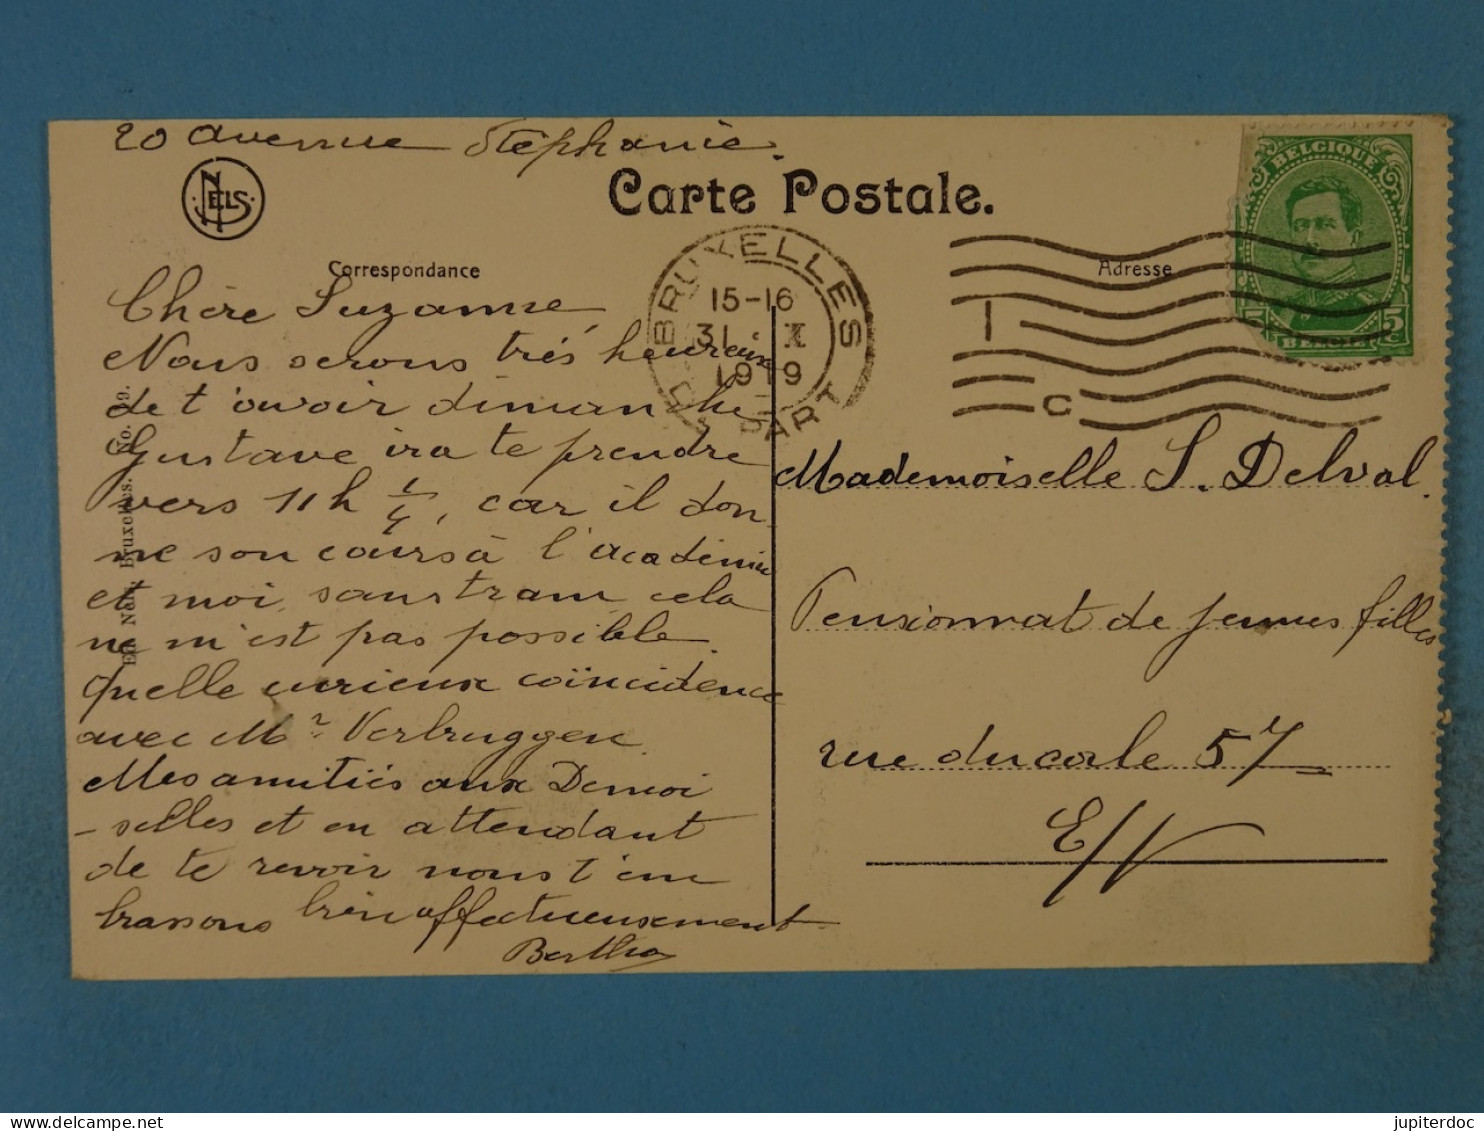 20 avenue Stéphanie.
NELS
Carte Postale.
Correspondance
Adresse
BRUXELLES
15-16
31 · X
1919
DÉPART
1
C
BELGIQUE
5c 5c
BELGIE
Chère Suzanne,
Nous serons très heureux
de t'avoir dimanche
Gustave ira te prendre
vers 11h 1/4, car il don
ne son cours à l'académie
et moi, sans tram, cela
ne m'est pas possible.
Quelle curieux coïncidence
avec Mr Verbruggen.
Mes amitiés aux Demoi
-selles et en attendant
de te revoir nous t'em
brassons bien affectueusement
Bertha
Mademoiselle S. Delval.
Pensionnat de jeunes filles
rue ducale 57
E/V
Ed. Nels, Bruxelles.
jupiterdoc